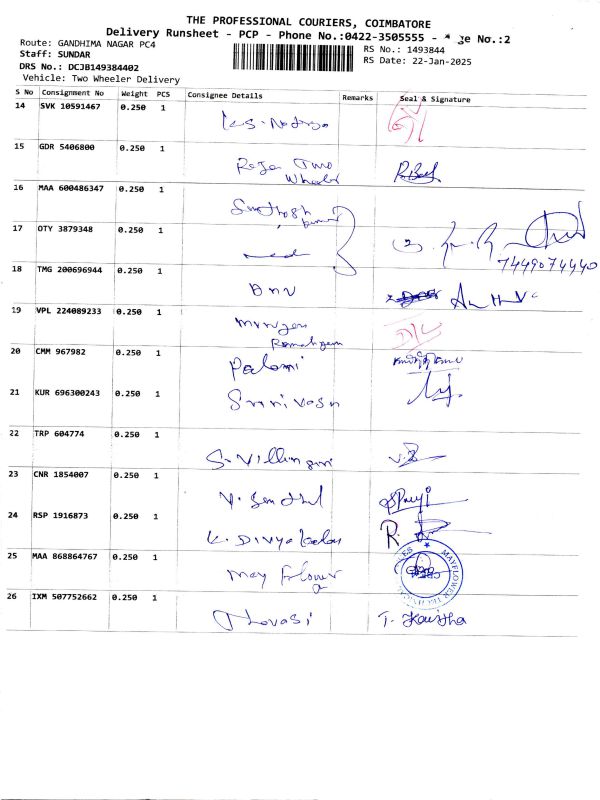 THE PROFESSIONAL COURIERS, COIMBATORE
Delivery Runsheet - PCP - Phone No.:0422-3505555 - * ge No.:2
Route: GANDHIMA NAGAR PC4
Staff: SUNDAR
DRS No.: DCJB149384402
Vehicle: Two Wheeler Delivery
RS No.: 1493844
RS Date: 22-Jan-2025
S No Consignment No Weight PCS Consignee Details Remarks Seal & Signature
14 SVK 10591467 0.250 1
K.S.
15 GDR 5406800 0.250 1
Raja Two
Wheeler
16 MAA 600486347 0.250 1
Santhosh
kumar
17 OTY 3879348 0.250 1
7449074440
18 TMG 200696944 0.250 1
19 VPL 224089233 0.250 1
D/L
20 CMM 967982 0.250 1
Palani
21 KUR 696300243 0.250 1
Srinivasn
22 TRP 604774 0.250 1
23 CNR 1854007 0.250 1
V. Senthil
24 RSP 1916873 0.250 1
K. Divya
25 MAA 868864767 0.250 1
May flower
MAYFLOWER
26 IXM 507752662 0.250 1
Thovasi T. Kavitha